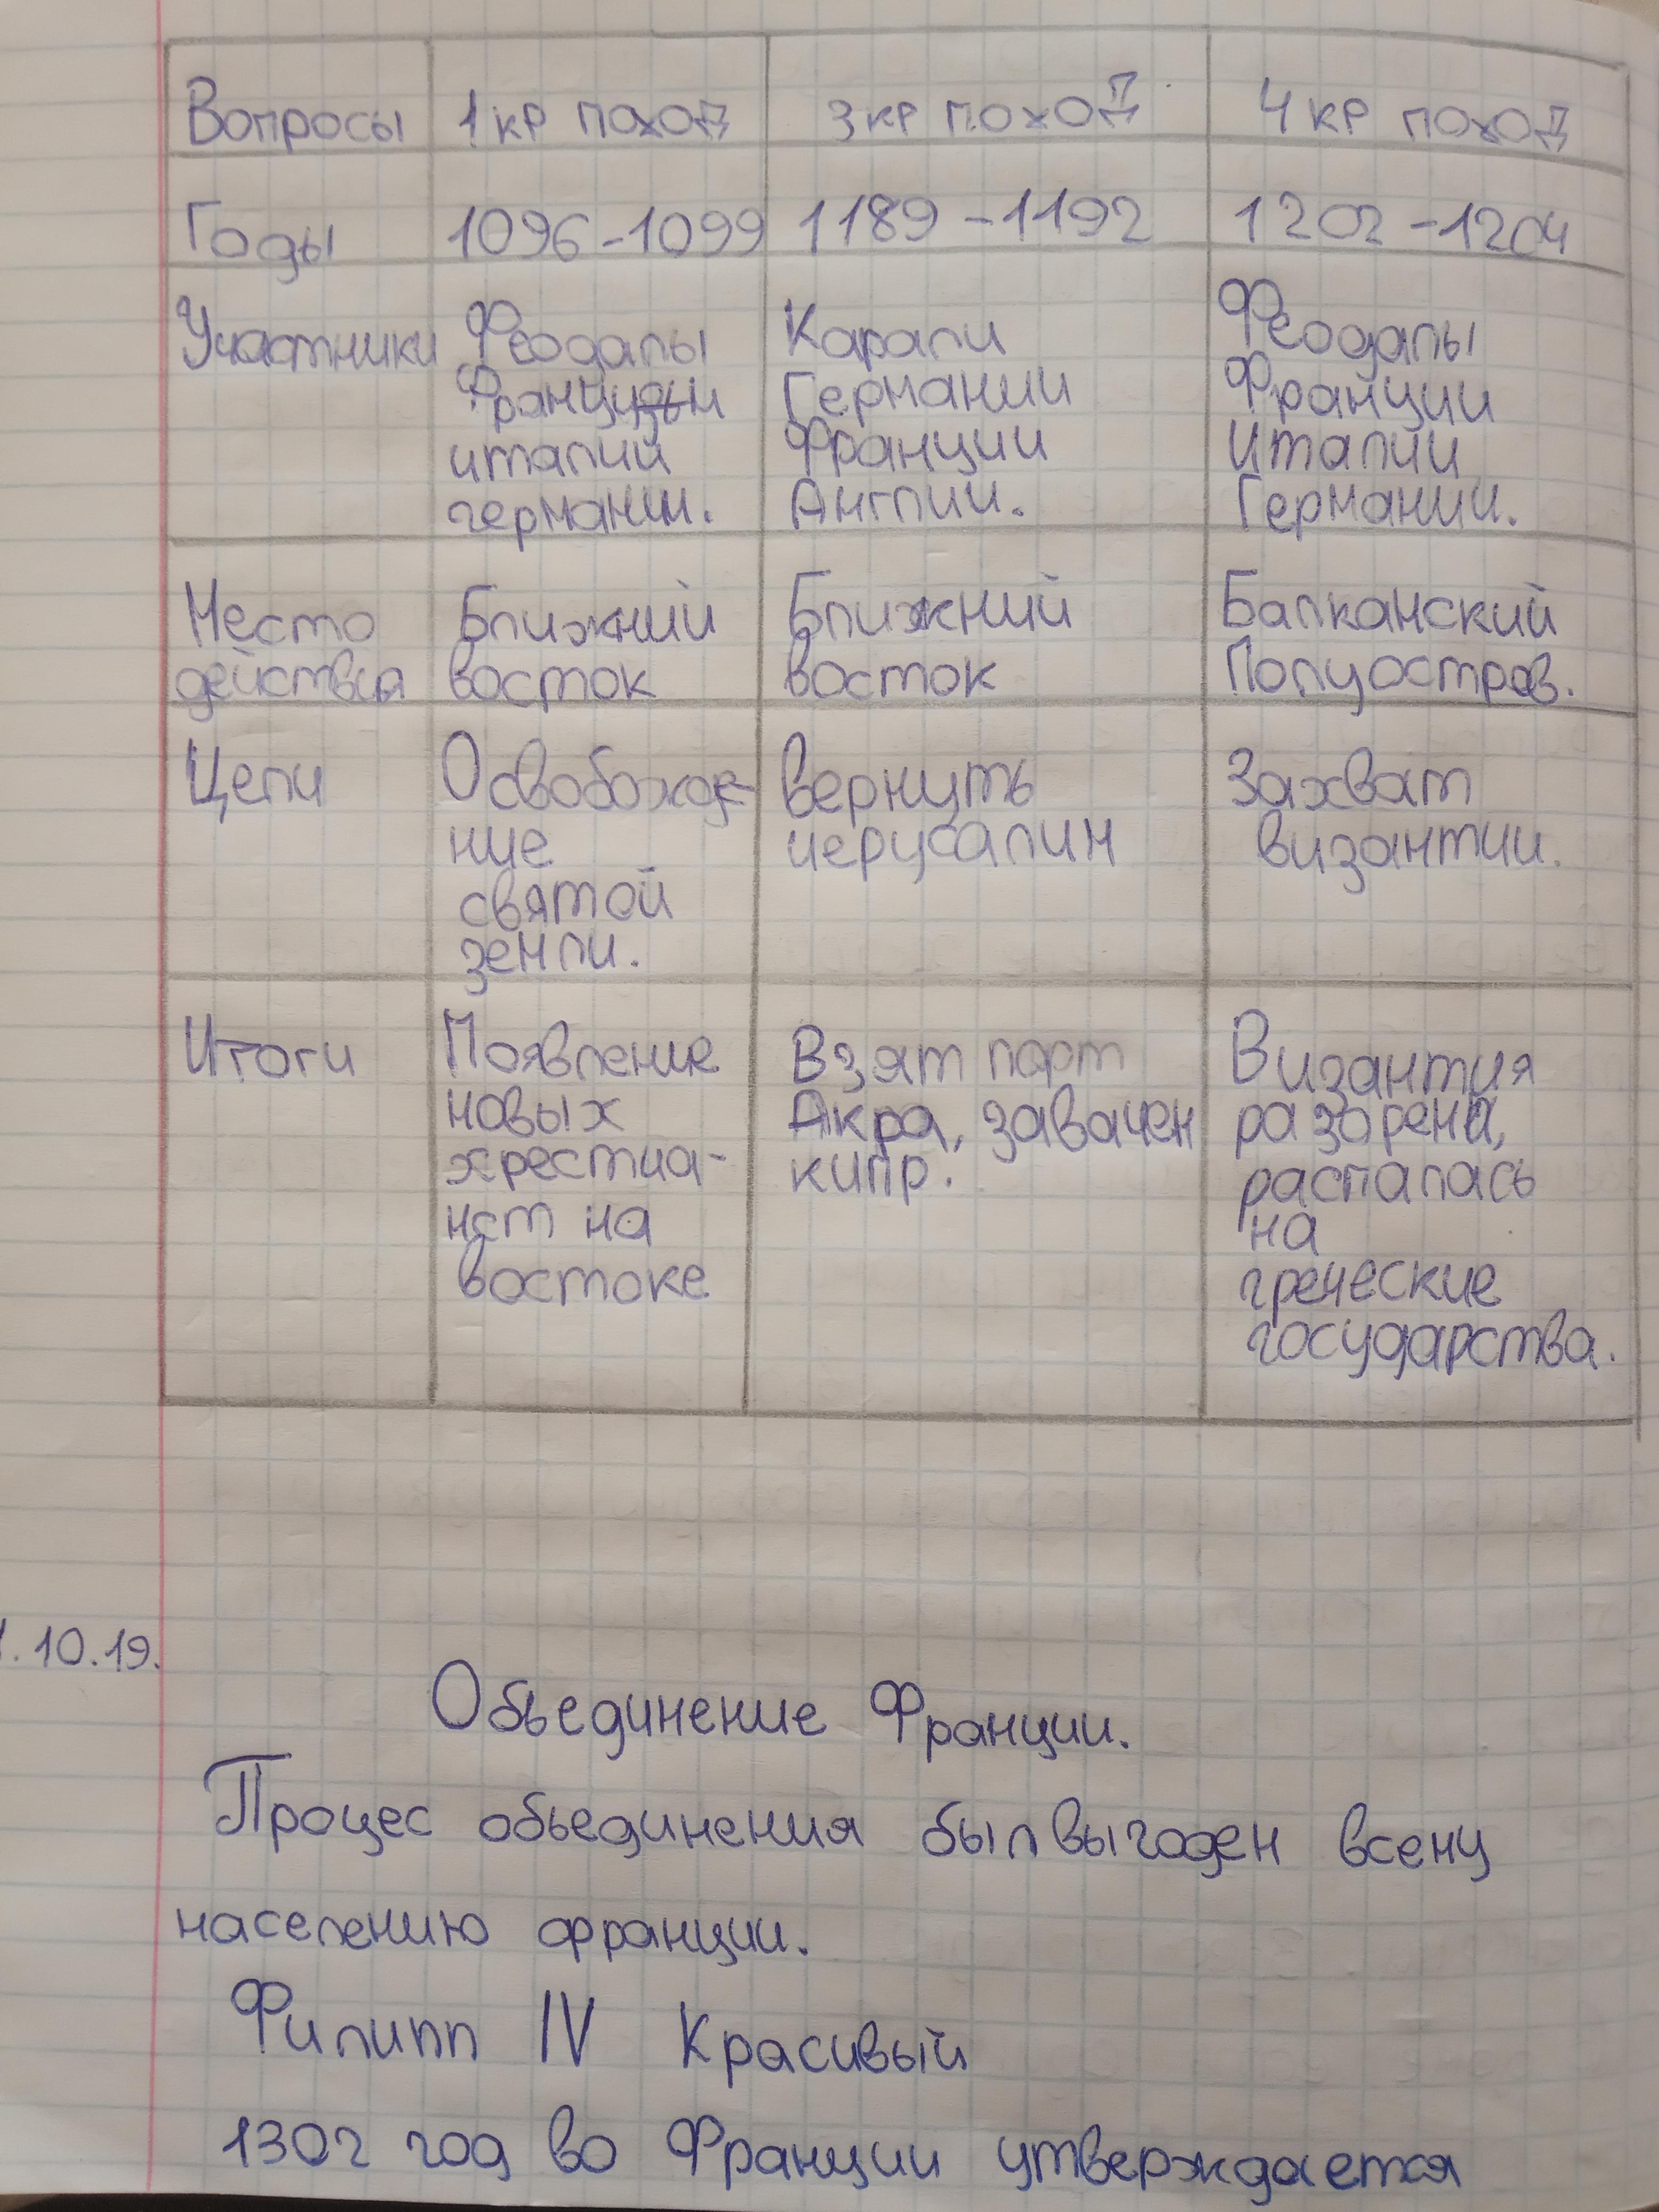 Вопросы 1 кр поход 3 кр поход 4 кр поход
Годы 1096-1099 1189-1192 1202-1204
Участники
Феодалы
Франции
италии
германии.
Карали
Германии
Франции
Англии.
Феодалы
Франции
Италии
Германии.
Место
действия
Ближний
восток
Ближний
восток
Балканский
Полуостров.
Цели
Освобожде-
ние
святой
земли.
вернуть
иерусалим
Захват
византии.
Итоги
Появление
новых
хрестиа-
нст на
востоке
Взят порт
Акра, завачен
кипр.
Византия
разорена,
распалась
на
греческие
государства.
.10.19.
Обьединение Франции.
Процес обьединения был выгоден всему
населению франции.
Филипп IV Красивый
1302 год во Франции утверждается